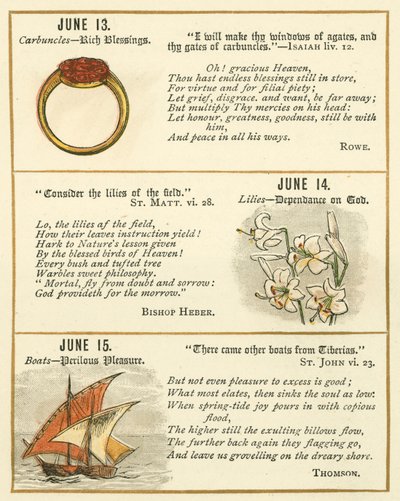 JUNE 13.
Carbuncles—Rich Blessings.
"I will make thy windows of agates, and
thy gates of carbuncles."—ISAIAH liv. 12.
Oh! gracious Heaven,
Thou hast endless blessings still in store,
For virtue and for filial piety;
Let grief, disgrace, and want, be far away;
But multiply Thy mercies on his head:
Let honour, greatness, goodness, still be with
him,
And peace in all his ways.
ROWE.
"Consider the lilies of the field."
ST. MATT. vi. 28.
JUNE 14.
Lilies—Dependance on God.
Lo, the lilies af the field,
How their leaves instruction yield!
Hark to Nature's lesson given
By the blessed birds of Heaven!
Every bush and tufted tree
Warbles sweet philosophy.
"Mortal, fly from doubt and sorrow:
God provideth for the morrow."
BISHOP HEBER.
JUNE 15.
Boats—Perilous Pleasure.
"There came other boats from Tiberias."
ST. JOHN vi. 23.
But not even pleasure to excess is good;
What most elates, then sinks the soul as low:
When spring-tide joy pours in with copious
flood,
The higher still the exulting billows flow,
The further back again they flagging go,
And leave us grovelling on the dreary shore.
THOMSON.